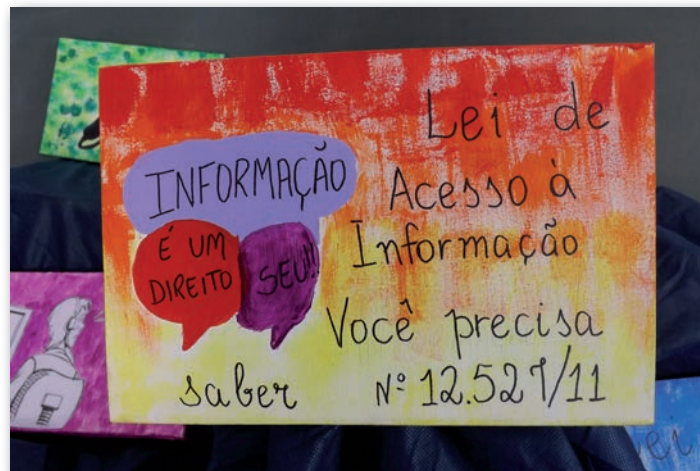 INFORMAÇÃO
É UM
DIREITO
SEU!!
Lei de
Acesso à
Informação
Você precisa
saber
Nº 12.527/11
ei